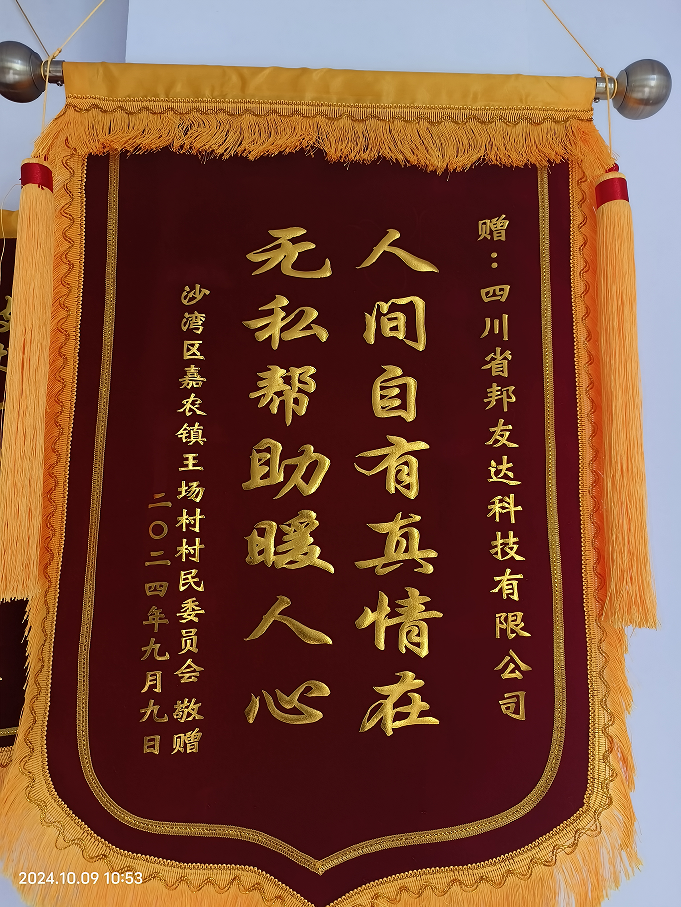 赠：四川省邦友达科技有限公司
人间自有真情在
无私帮助暖人心
沙湾区嘉农镇王场村村民委员会 敬赠
二〇二四年九月九日
2024.10.09 10:53